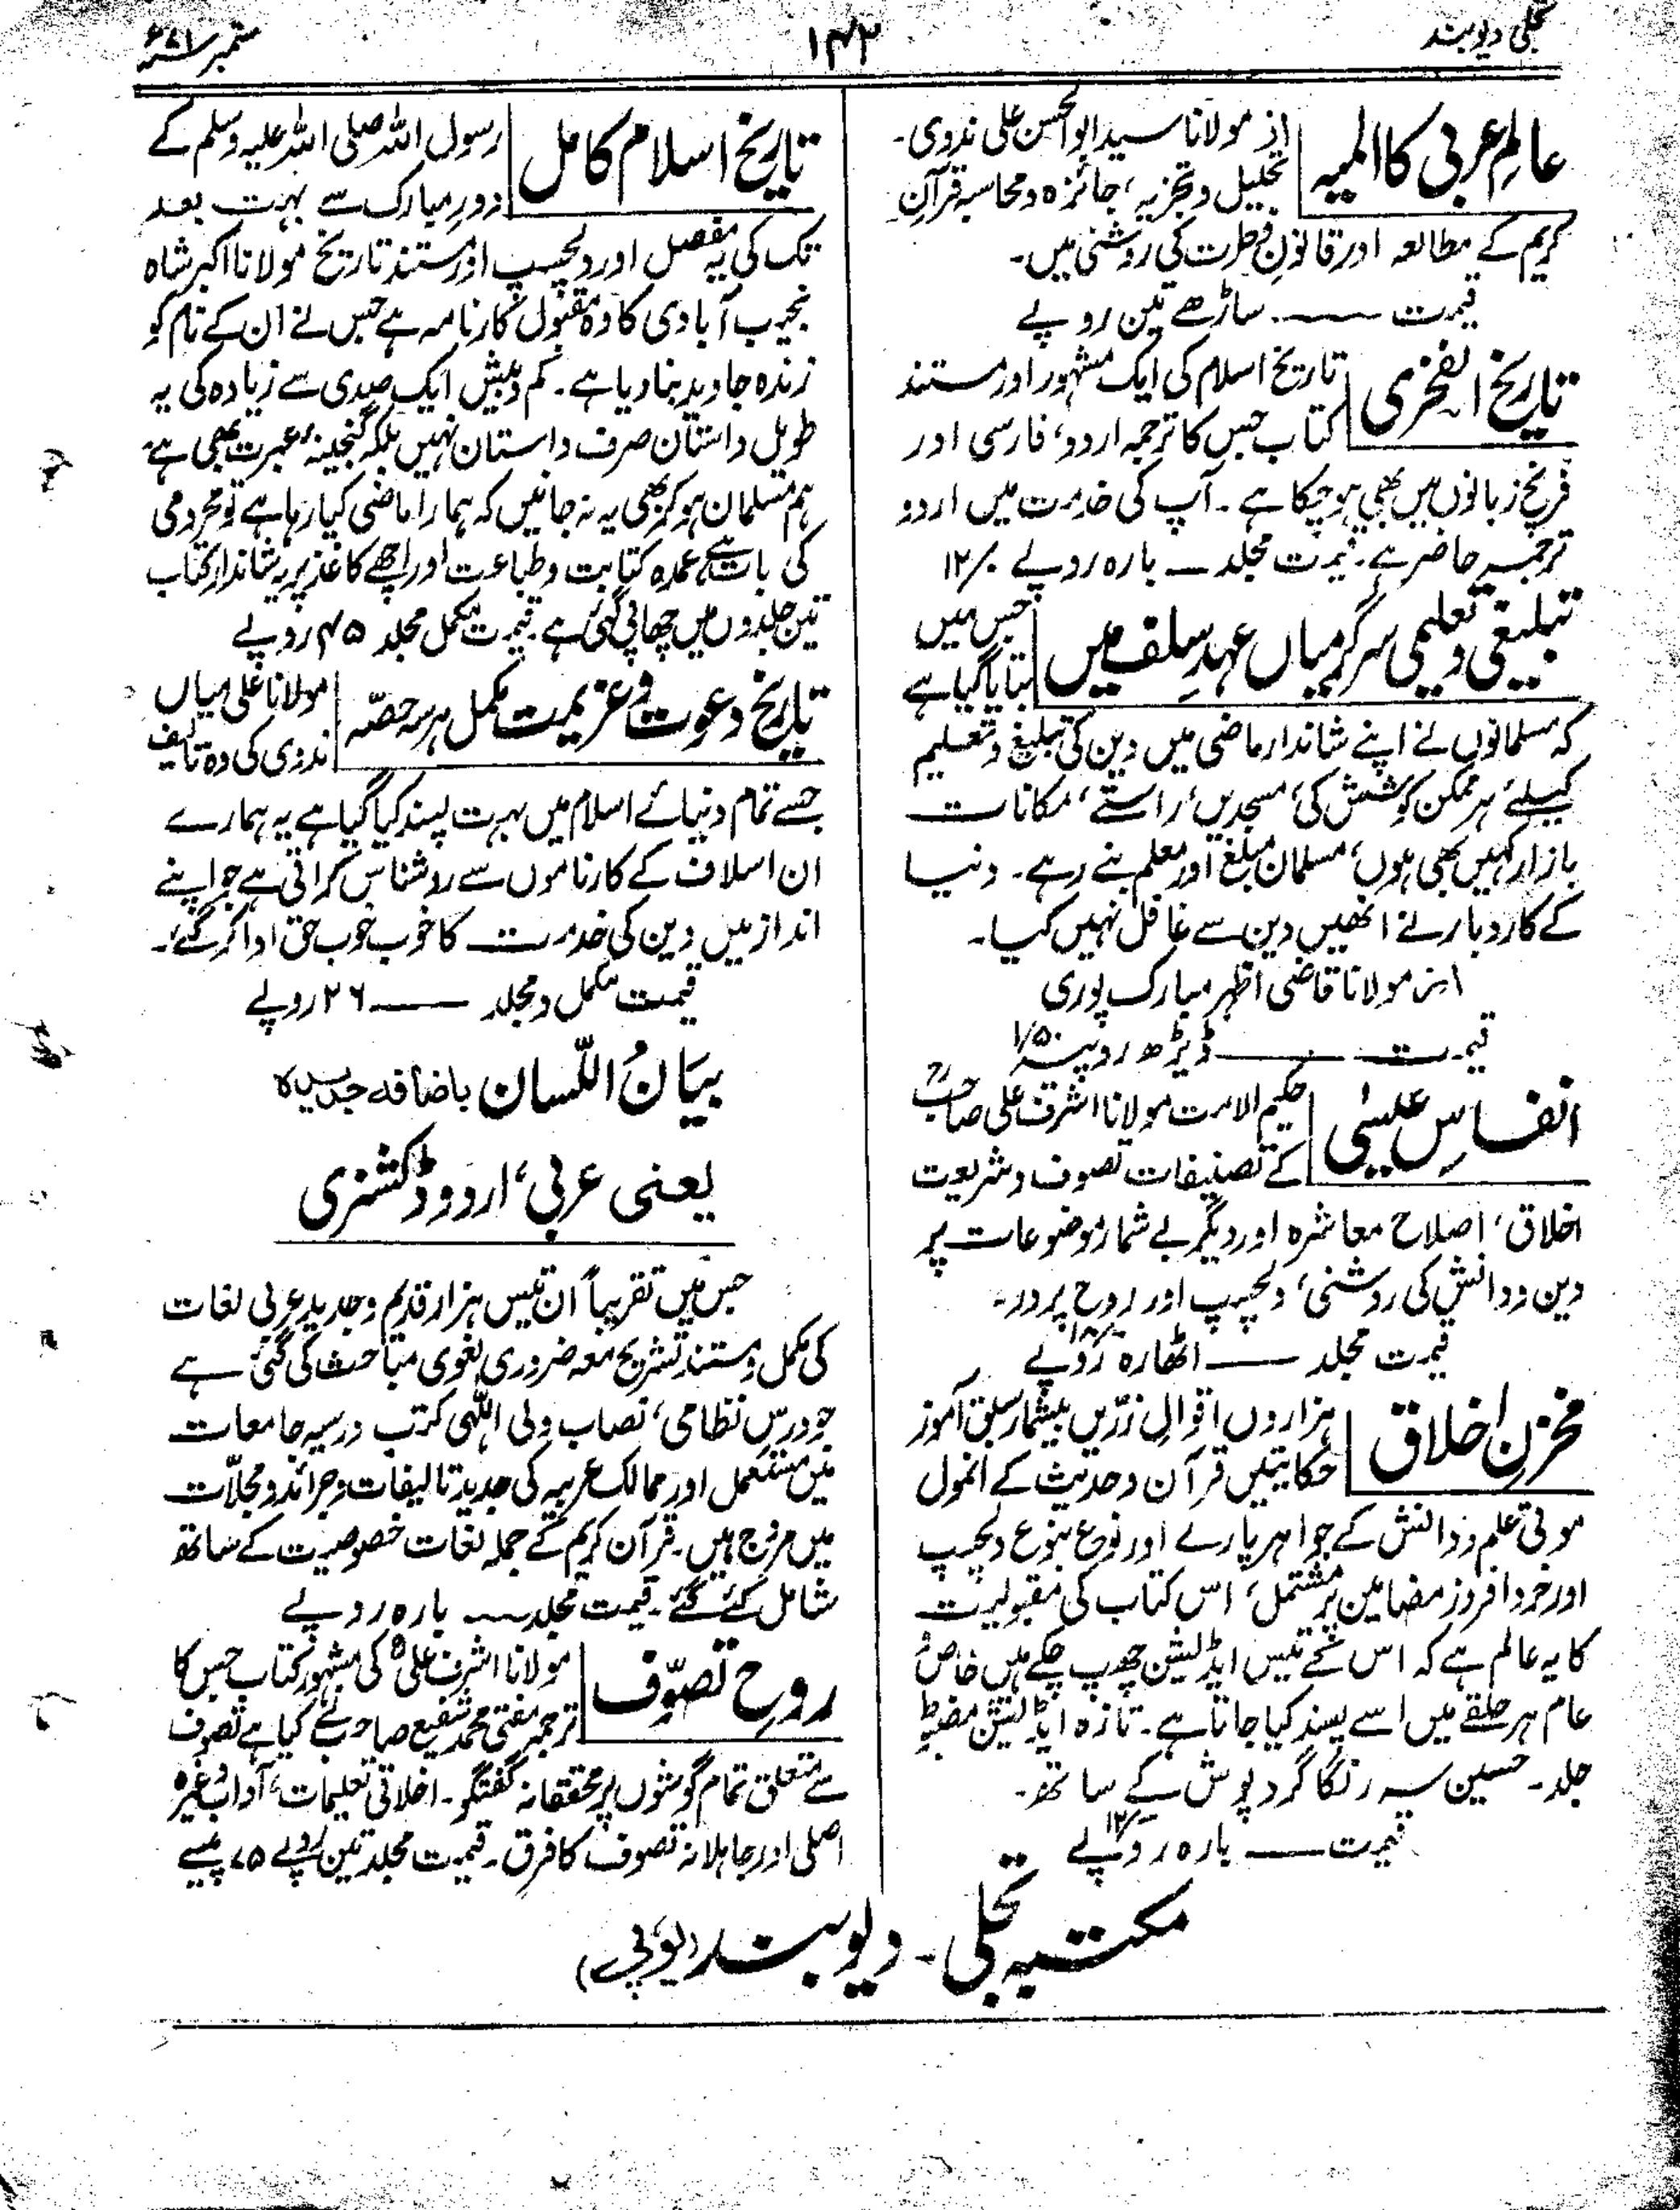 تجلی دیوبند
۱۴۳
ستمبر ۷۱ء
عالمِ عربی کا المیہ
از مولانا سید ابوالحسن علی ندوی۔
تحلیل وتجزیہ، جائزہ ومحاسبہ قرآنِ
کریم کے مطالعہ اور قانونِ فطرت کی روشنی میں۔
قیمت ـــــ ساڑھے تین روپے
تاریخ الفخری
تاریخ اسلام کی ایک مشہور اور مستند
کتاب جس کا ترجمہ اردو، فارسی اور
فریخ زبانوں میں بھی ہوچکا ہے۔ آپ کی خدمت میں اردو
ترجمہ حاضر ہے۔ قیمت مجلد ــــ بارہ روپے ۱۲/۰
تبلیغی وتعلیمی سرگرمیاں عہدِ سلف میں
جس میں
بتایا گیا ہے
کہ مسلمانوں نے اپنے شاندار ماضی میں دین کی تبلیغ وتعلیم
کیلئے ہر ممکن کوشش کی، مسجدیں، راستے، مکانات
بازار کہیں بھی ہوں، مسلمان مبلغ اور معلم بنے رہے۔ دنیا
کے کاروبار نے انھیں دین سے غافل نہیں کیا۔
از مولانا قاضی اطہر مبارک پوری
قیمت ـــــــ ڈیڑھ روپیہ ۱/۵۰
انفاسِ عیسٰی
حکیم الامت مولانا اشرف علی صاحبؒ
کے تصنیفات تصوف وشریعت
اخلاق، اصلاح معاشرہ اور دیگر بے شمار موضوعات پر
دین ودانش کی روشنی، دلچسپ اور روح پرور۔
قیمت مجلد ـــــ اٹھارہ روپے ۱۸/-
مخزنِ اخلاق
ہزاروں اقوالِ زرّیں بیشمار سبق آموز
حکایتیں قرآن وحدیث کے انمول
موتی علم ودانش کے جواہر پارے اور نوع بنوع دلچسپ
اور خرد افروز مضامین پر مشتمل، اس کتاب کی مقبولیت
کا یہ عالم ہے کہ اس کے تئیس ایڈیشن چھپ چکے ہیں خاص و
عام ہر حلقے میں اسے پسند کیا جاتا ہے۔ تازہ ایڈیشن مضبوط
جلد۔ حسین سہ رنگا گرد پوش کے ساتھ۔
قیمت ـــــ بارہ روپے ۱۲/-
تاریخ اسلام کامل
رسول اللہ صلی اللہ علیہ وسلم کے
دورِ مبارک سے بہت بعد
تک کی یہ مفصل اور دلچسپ اور مستند تاریخ مولانا اکبر شاہ
نجیب آبادی کا وہ مقبول کارنامہ ہے جس نے ان کے نام کو
زندہ جاوید بنا دیا ہے۔ کم وبیش ایک صدی سے زیادہ کی یہ
طویل داستان صرف داستان نہیں بلکہ گنجینۂ عبرت بھی ہے،
ہم مسلمان ہوکر بھی یہ نہ جانیں کہ ہمارا ماضی کیا رہا ہے تو محرومی
کی بات ہے، عمدہ کتابت وطباعت اور اچھے کاغذ پر یہ شاندار کتاب
تین جلدوں میں چھاپی گئی ہے۔ قیمت مکمل مجلد ۴۵ روپے
تاریخ دعوت وعزیمت مکمل ہر سہ حصّہ
مولانا علی میاں
ندوی کی وہ تالیف
جسے تمام دنیائے اسلام میں بہت پسند کیا گیا ہے یہ ہمارے
ان اسلاف کے کارناموں سے روشناس کراتی ہے جو اپنے
انداز میں دین کی خدمت کا خوب خوب حق ادا کر گئے۔
قیمت مکمل ومجلد ـــــ ۲۶ روپے
بیَانُ اللّسان باضافہ جدیدہ کا
یعنی عربی، اردو ڈکشنری
جس میں تقریباً ان تیس ہزار قدیم وجدید عربی لغات
کی مکمل ومستند تشریح معہ ضروری لغوی مباحث کی گئی ہے
جو درسِ نظامی، نصاب ولی اللّٰہی کتب درسیہ جامعات
میں مستعمل اور ممالک عربیہ کی جدید تالیفات وجرائد ومجلّات
میں مروج ہیں۔ قرآن کریم کے جملہ لغات خصوصیت کے ساتھ
شامل کئے گئے۔ قیمت مجلد ـــــ بارہ روپے
روحِ تصوّف
مولانا اشرف علیؒ کی مشہور کتاب جس کا
ترجمہ مفتی محمد شفیع صاحب نے کیا ہے تصوف
سے متعلق تمام گوشوں پر محققانہ گفتگو۔ اخلاقی تعلیمات، آداب وغیرہ
اصلی اور جاہلانہ تصوف کا فرق۔ قیمت مجلد تین روپے ۷۵ پیسے
مکتبہ تجلی۔ دیوبند (یوپی)